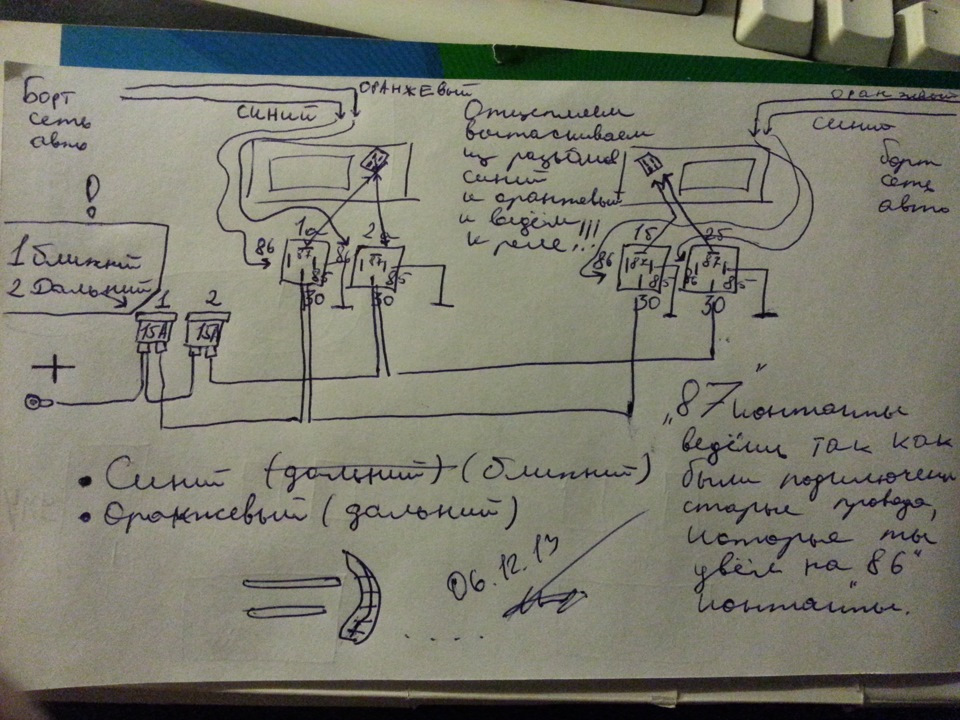 Борт
сеть
авто
ОРАНЖЕВЫЙ
СИНИЙ
Отцепляем
вытаскиваем
из разъёмов
синий
и оранжевый
и ведём
к реле!!!
оранжевый
синий
борт
сеть
авто
!
1 Ближний
2 Дальний
1 2
15A 15A
+
1а 2а
86 87 85 86 87 85
30 30
1б 2б
86 87 85 86 87 85
30 30
• Синий (дальний) (ближний)
• Оранжевый (дальний)
06.12.13
"87" контакты
ведёшь так как
были подключены
старые провода,
которые ты
увёл на "86"
контакты.